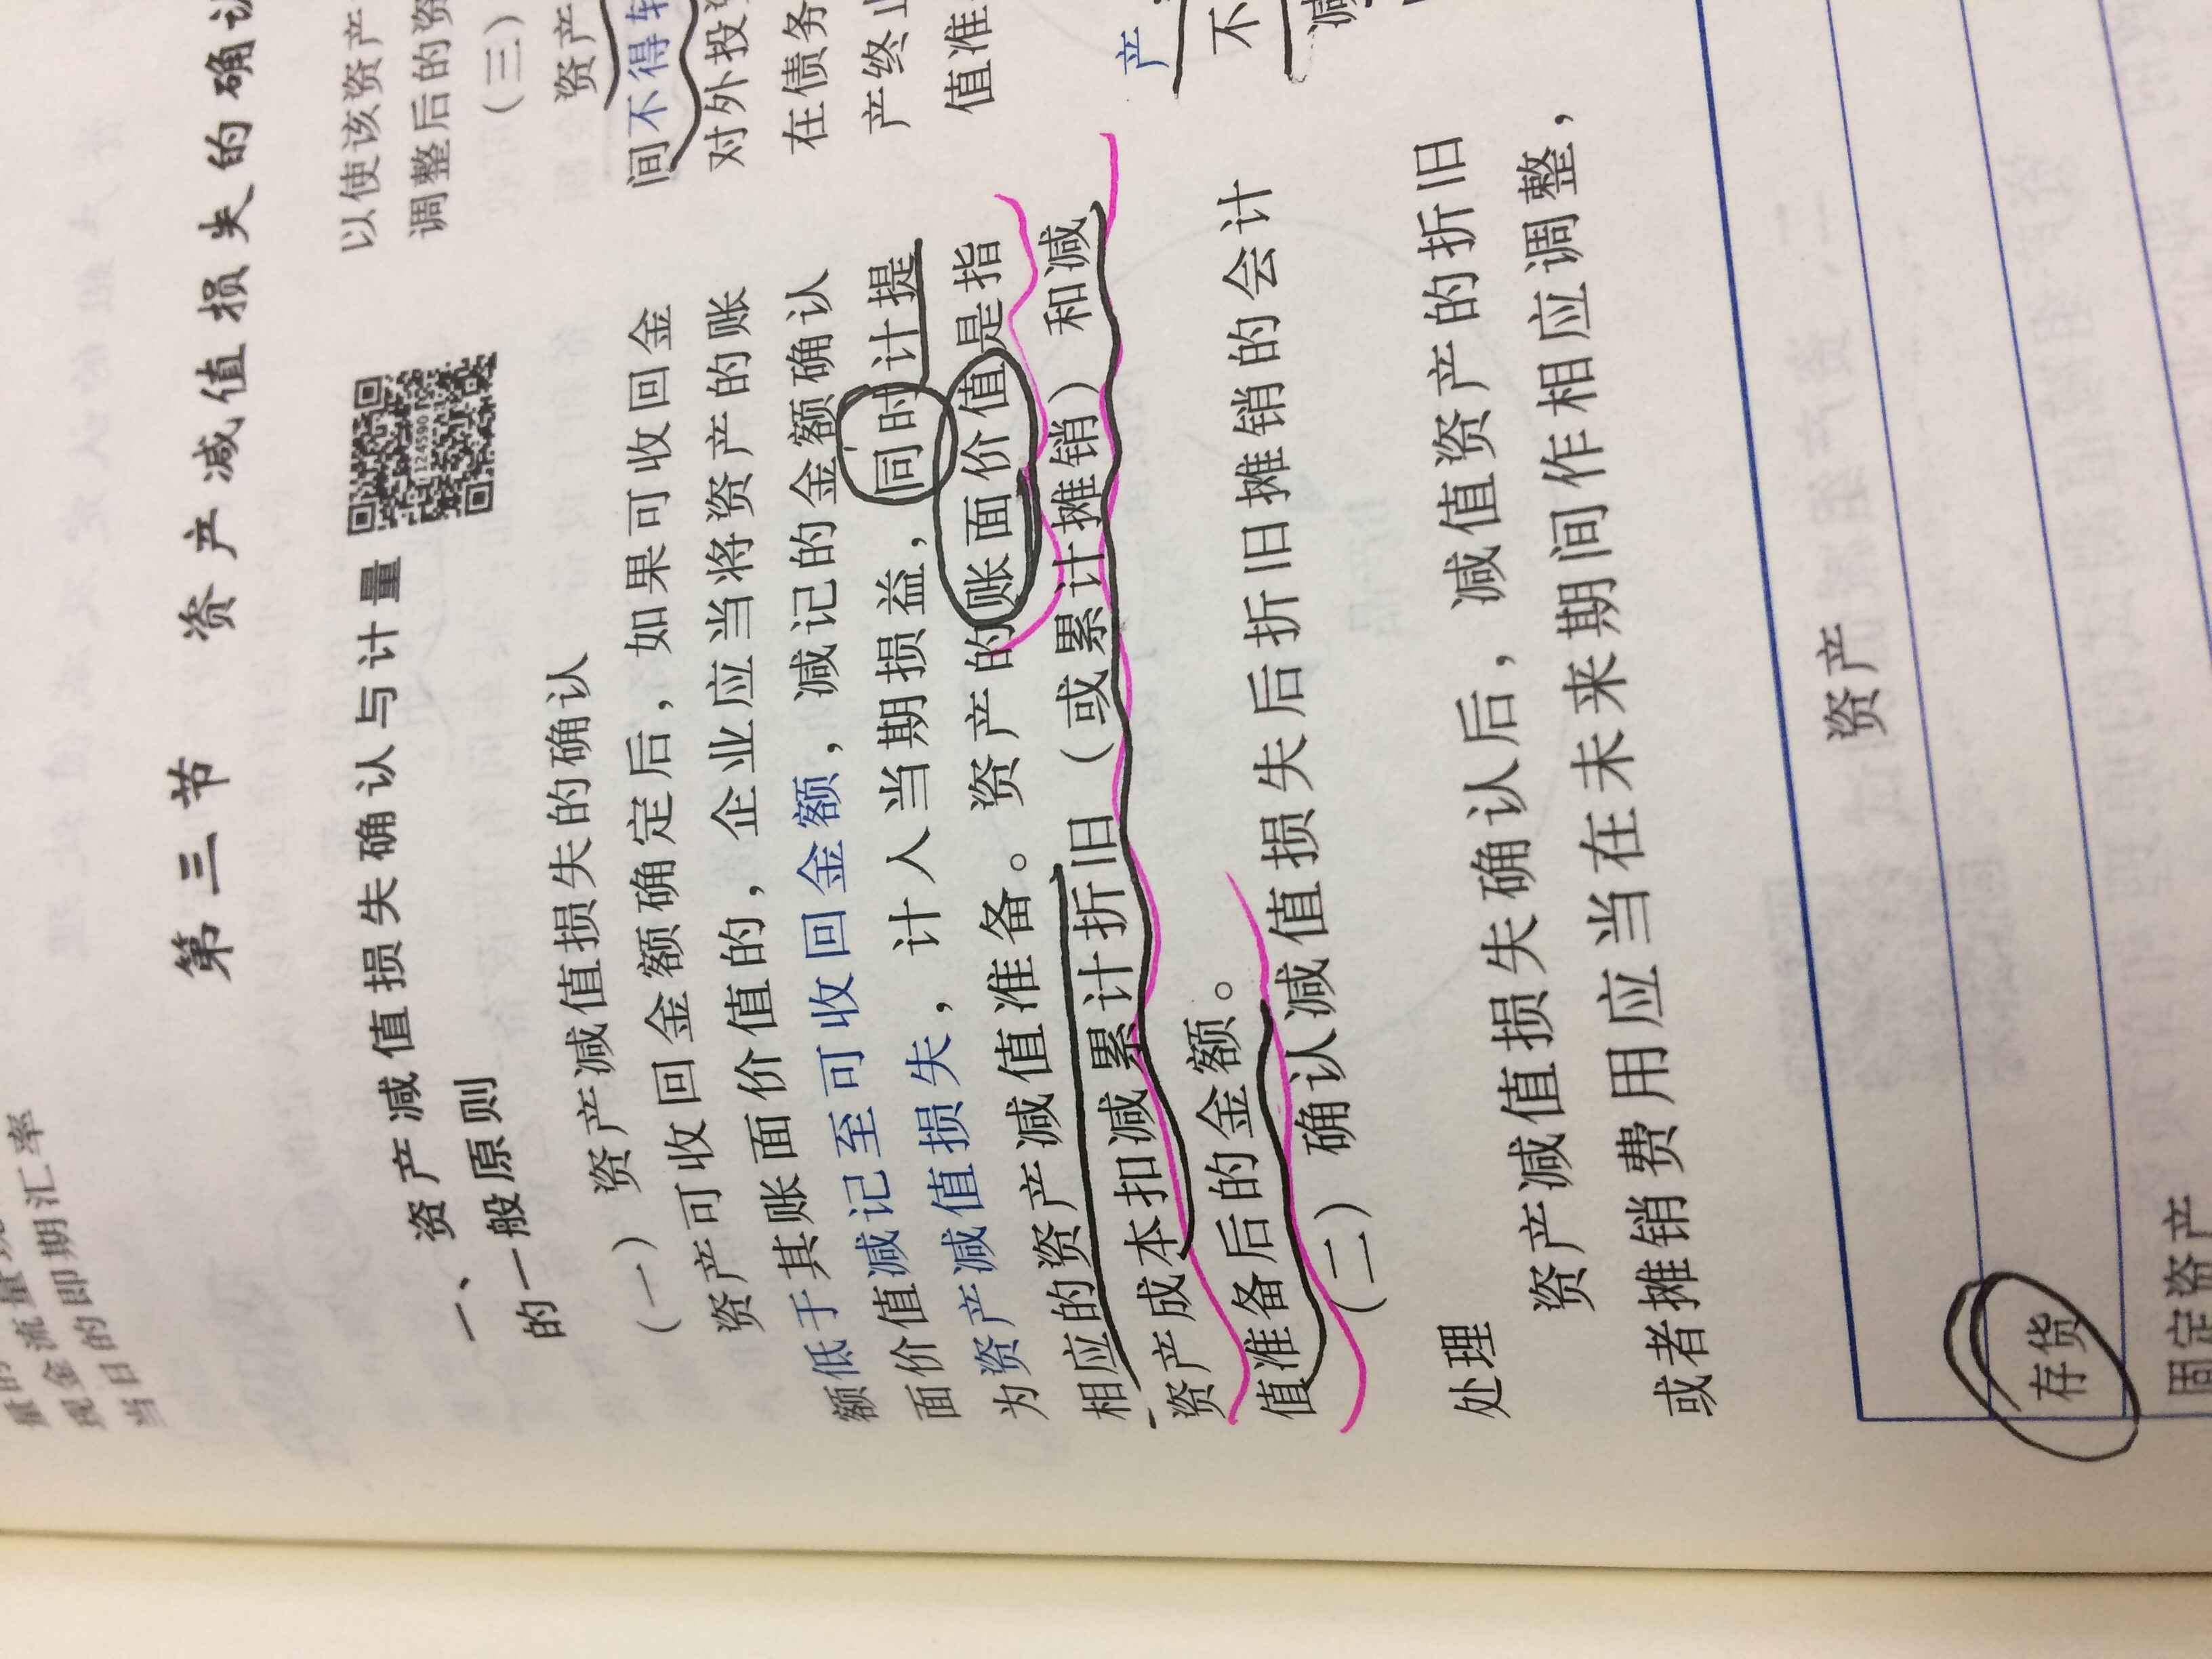 现金流量
现金的即期汇率
当日
第三节 资产减值损失的确认
一、资产减值损失确认与计量
的一般原则
（一）资产减值损失的确认
资产可收回金额确定后，如果可收回金
额低于其账面价值的，企业应当将资产的账
面价值减记至可收回金额，减记的金额确认
为资产减值损失，计入当期损益，同时计提
相应的资产减值准备。资产的账面价值是指
资产成本扣减累计折旧（或累计摊销）和减
值准备后的金额。
（二）确认减值损失后折旧摊销的会计
处理
资产减值损失确认后，减值资产的折旧
或者摊销费用应当在未来期间作相应调整，
以使该资产
调整后的资
（三）
资产
间不得转
对外投资
在债务
产终止
值准
产
不
减
资产
存货
固定资产